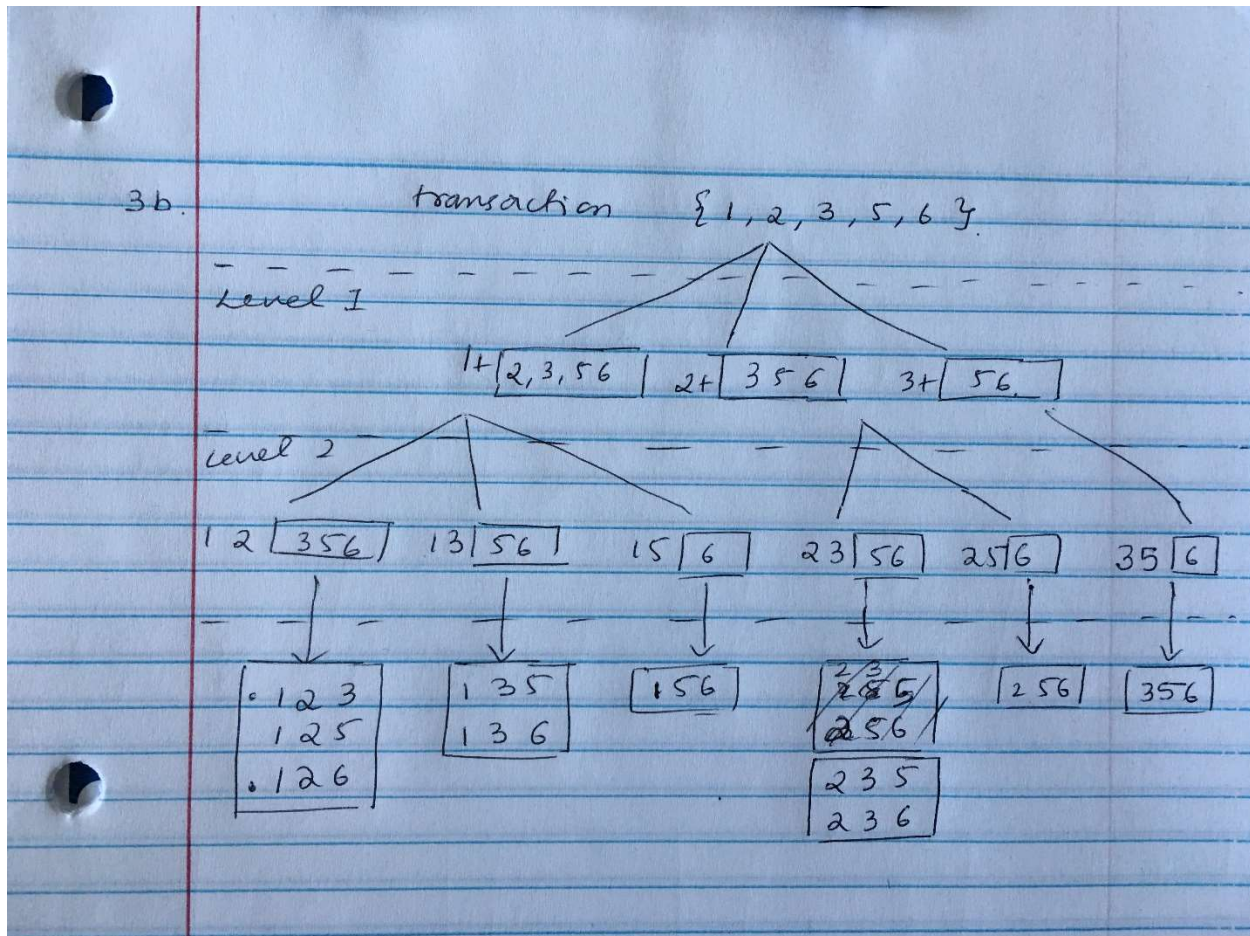 3b. transaction { 1, 2, 3, 5, 6 }.
Level I
1+ 2, 3, 5 6 2+ 3 5 6 3+ 5 6
Level 2
1 2 3 5 6 1 3 5 6 1 5 6 2 3 5 6 2 5 6 3 5 6
1 2 3 1 3 5 1 5 6 2 5 6 3 5 6
1 2 5 1 3 6 2 5 6
1 2 6 2 3 5
2 3 6